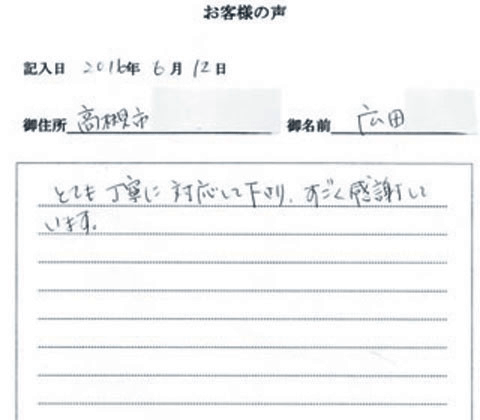 お客様の声
記入日 2016年 6月 12日
御住所 高槻市 御名前 広田
とても丁寧に対応して下さり、すごく感謝して
います。